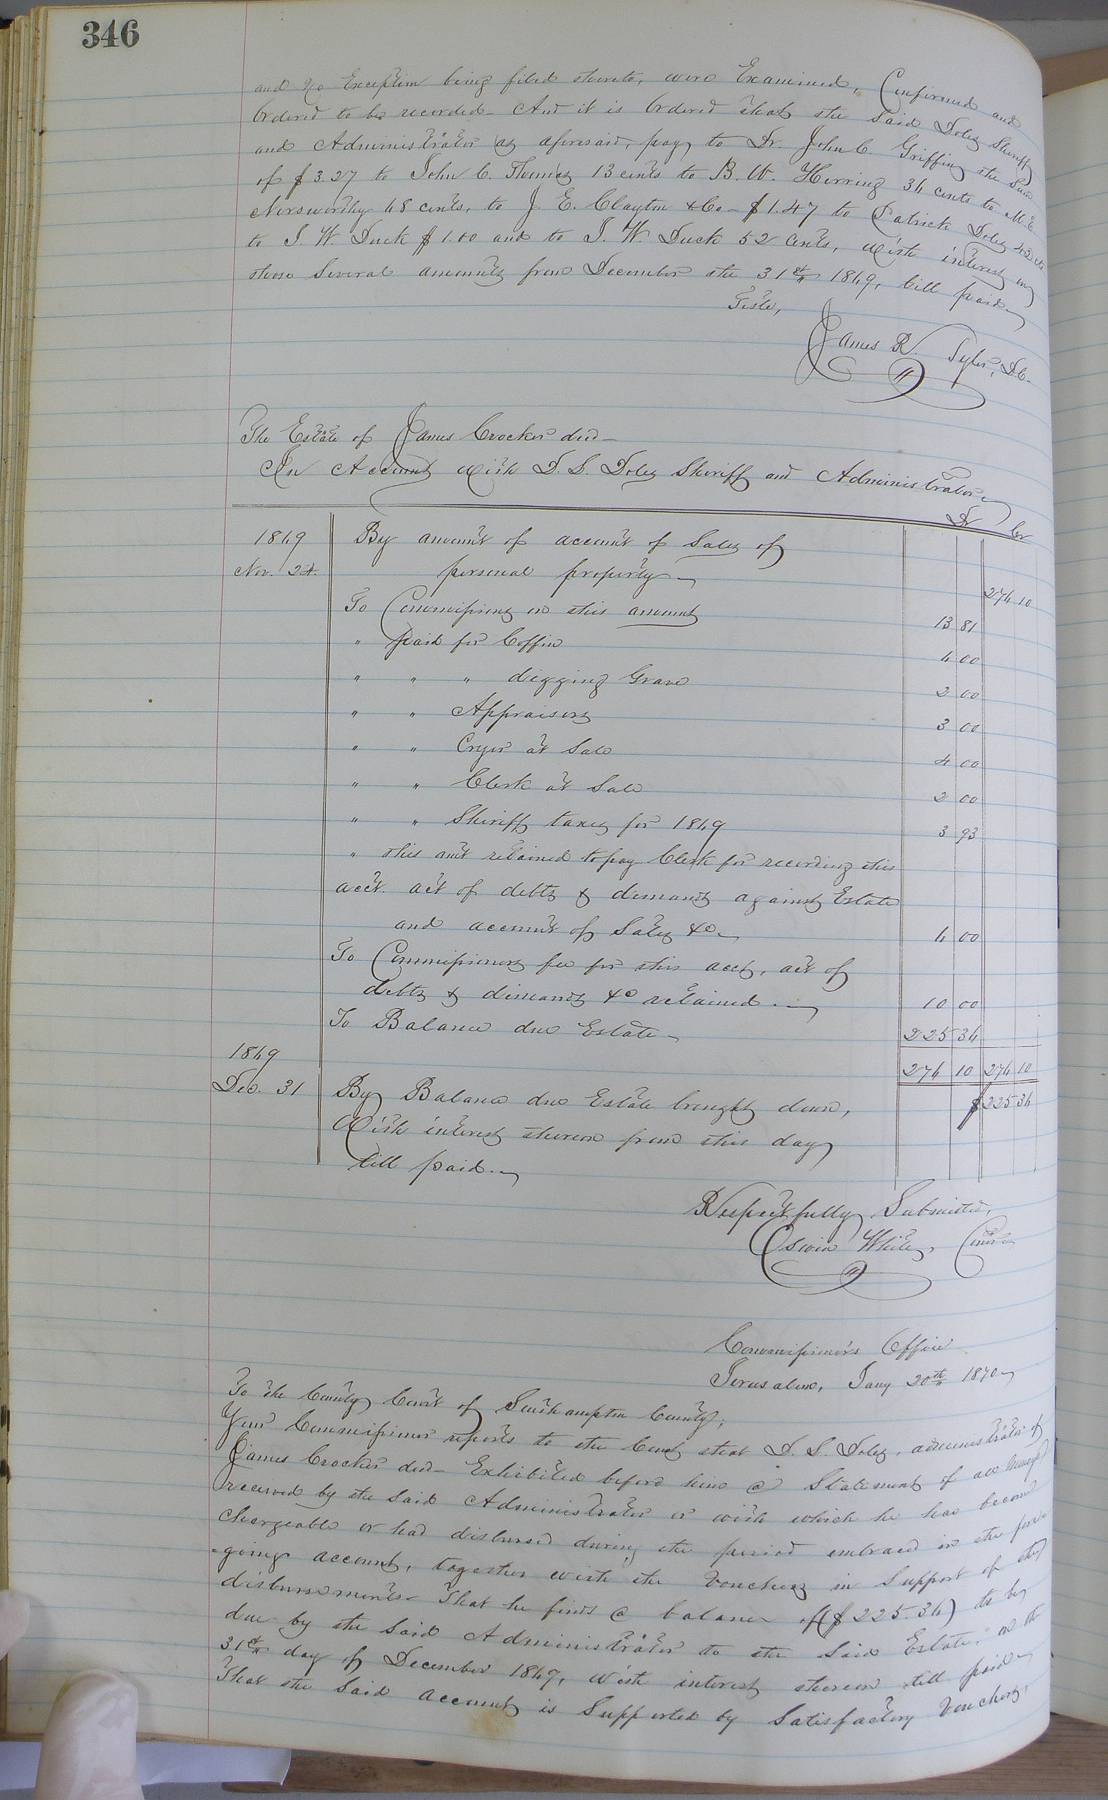 346
and No Exception being filed thereto, were Examined, Confirmed and
Ordered to be recorded. And it is Ordered that the said Doles Sheriff
and Administrator as aforesaid, pay to Dr. John C. Griffin the sum
of $3.27 to John C. Thomas 13 cents to B. W. Herring 34 cents to M. E.
Norsworthy 48 cents, to J. E. Clayton & Co - $1.47 to Patrick Doles 42 cts
to J. W. Duck $1.00 and to J. W. Duck 52 Cents, with interest on
those several amounts from December the 31st 1849, till paid
Teste,
James R. Tyler, D.C.
The Estate of James Crocker decd -
In Account with T. S. Doles Sheriff and Administrator
Dr Cr
1849 By amount of account of Sales of
Nov. 24. personal property 274 10
To Commissions on this amount 13 81
" paid for Coffin 4 00
" " " digging Grave 2 00
" " Appraisers 3 00
" " Cryer at Sale 4 00
" " Clerk at Sale 2 00
" " Sheriff taxes for 1849 3 93
" this amt retained to pay Clerk for recording this
acct. act of debts & demands against Estate
and account of Sales &c 4 00
To Commissioners fee for this acct, act of
debts & demands &c retained 10 00
To Balance due Estate 225 34
1849 274 10 274 10
Dec. 31 By Balance due Estate brought down, $225 34
With interest thereon from this day
till paid.
Respectfully Submitted,
White, Comr
Commissioner's Office
Jerusalem, Jany 20th 1870
To the County Court of Southampton County;
Your Commissioner reports to the Court that T. S. Doles, administrator of
James Crocker decd - Exhibited before him a Statement of all Moneys
received by the said Administrator or with which he has become
chargeable or had disbursed during the period embraced in the fore
-going account, together with the Vouchers in Support of the
disbursements - That he finds a balance of ($225.34) to be
due by the said Administrator to the said Estate, on the
31st day of December 1849, with interest thereon till paid
That the said account is Supported by Satisfactory Vouchers,